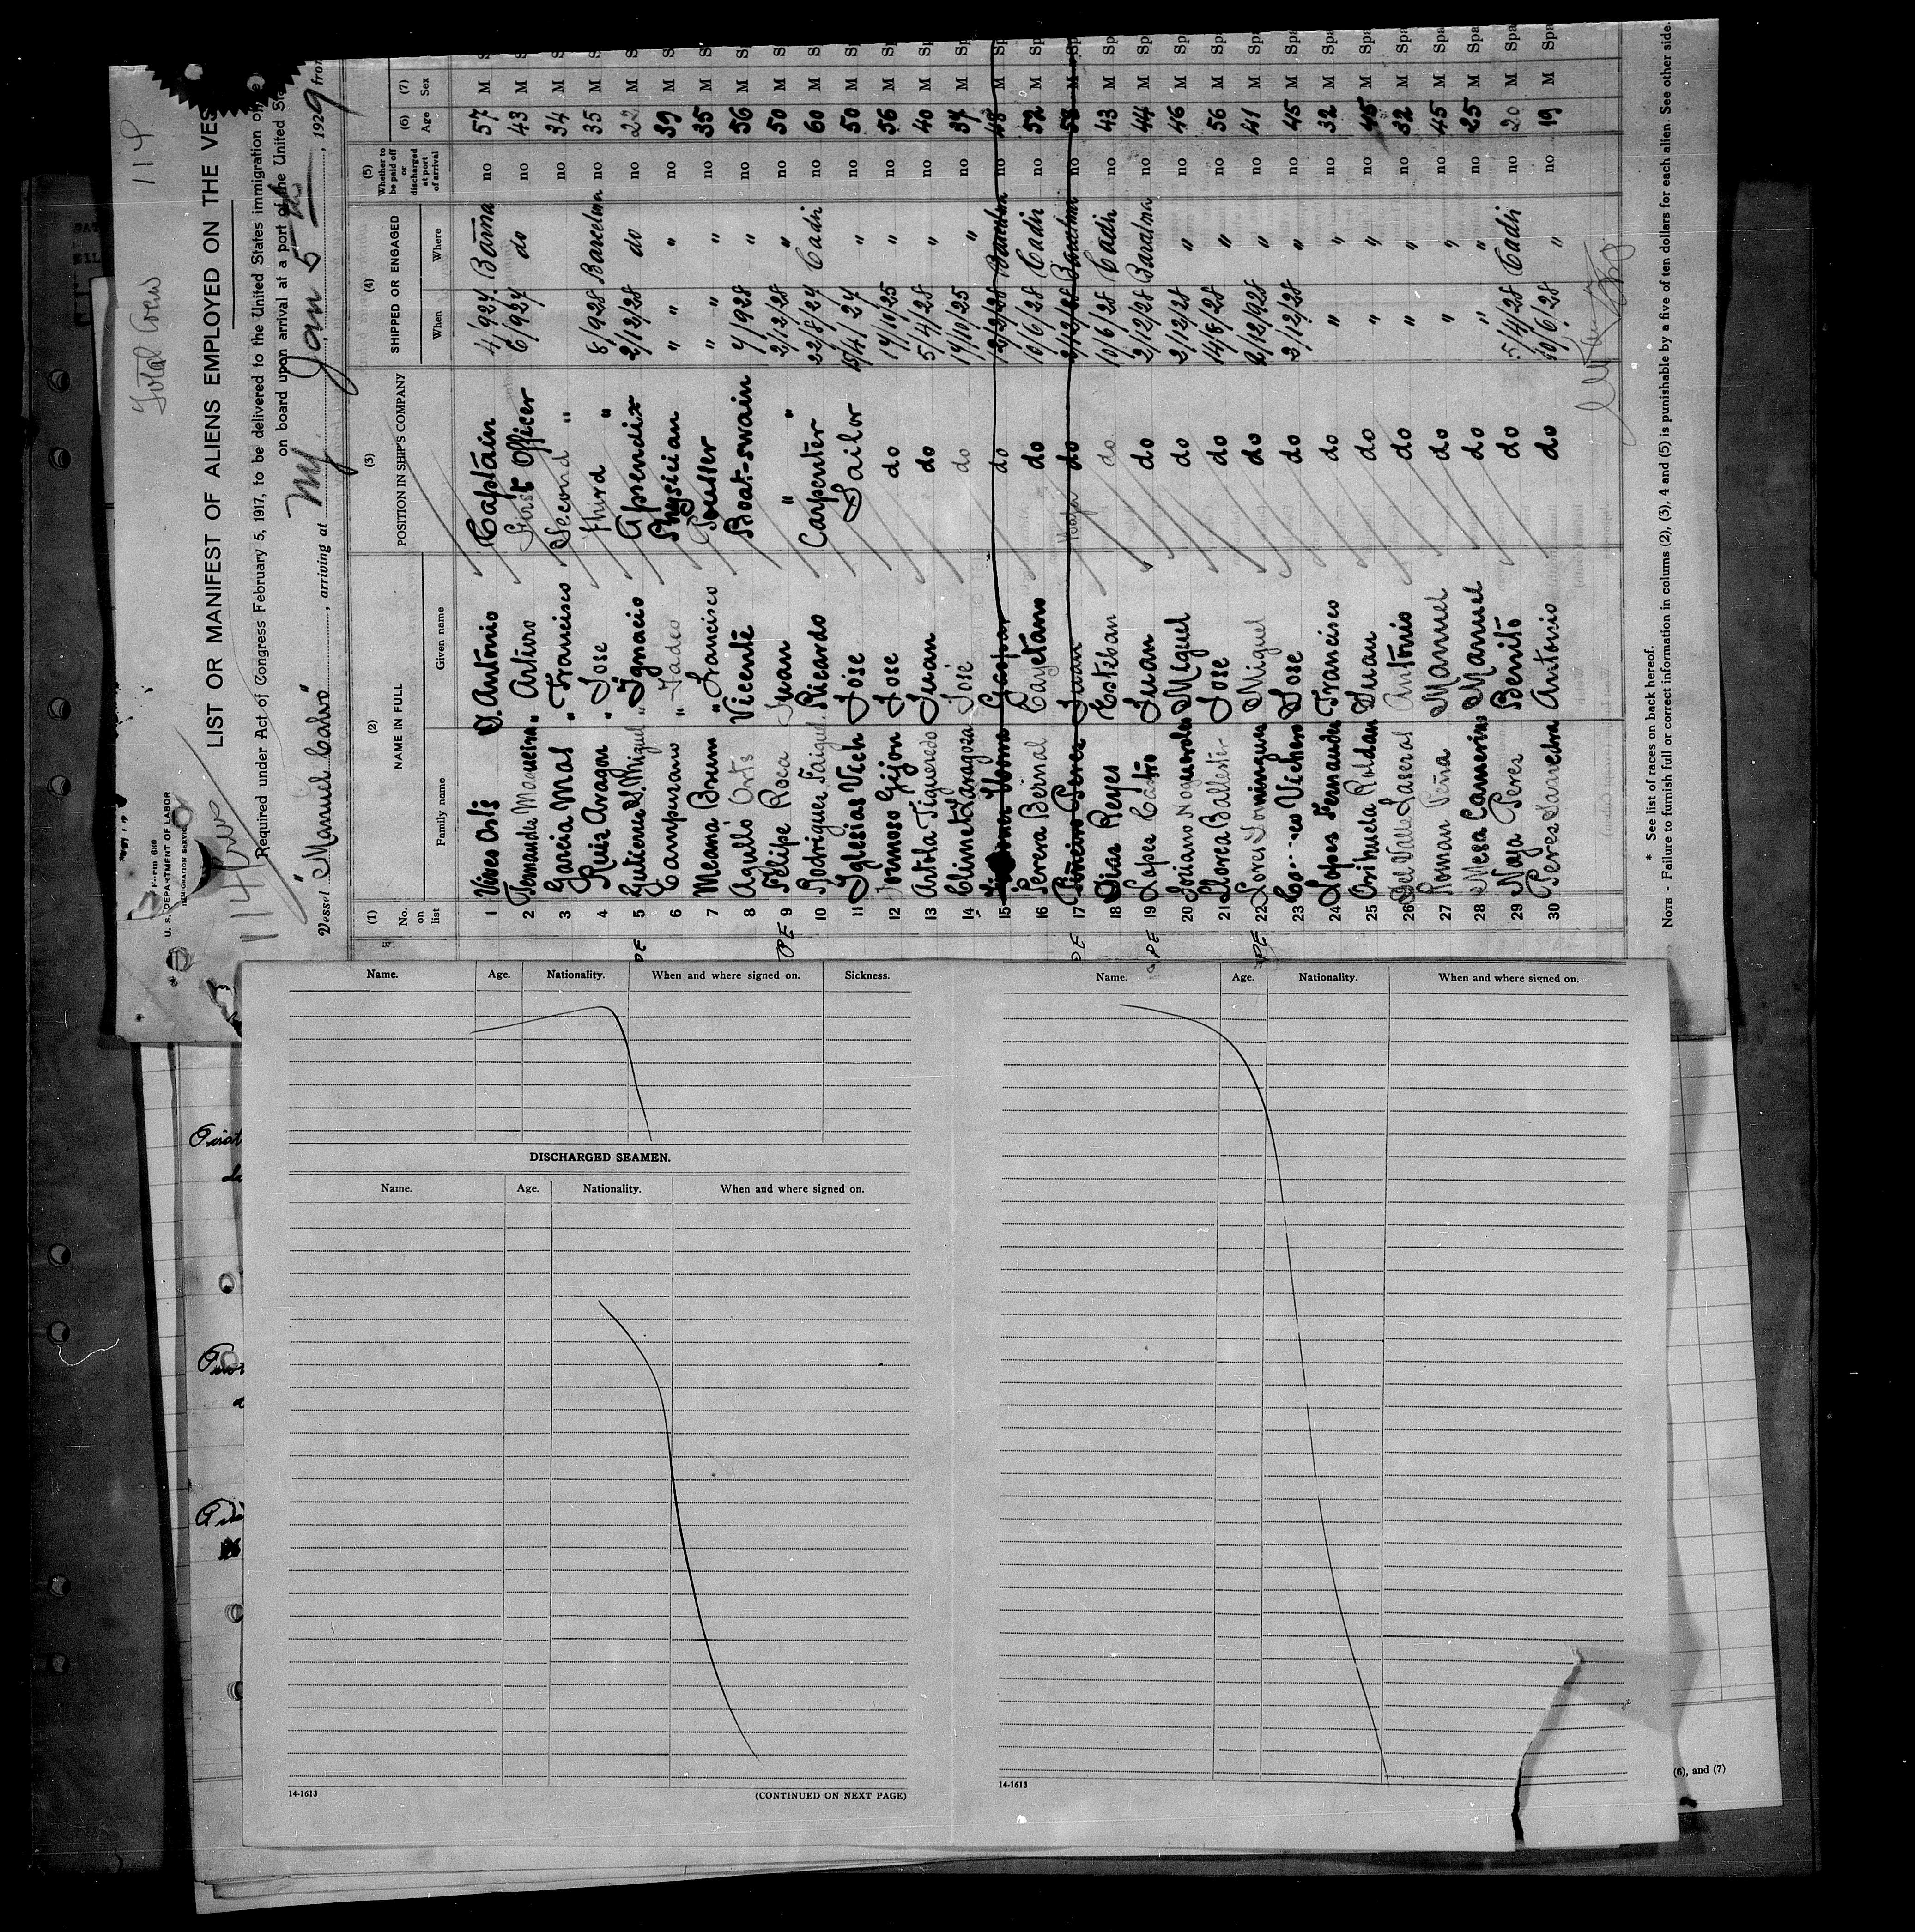 Total Crew 114
114 Crew
Form 680
U. S. DEPARTMENT OF LABOR
IMMIGRATION SERVICE
LIST OR MANIFEST OF ALIENS EMPLOYED ON THE VES
Required under Act of Congress February 5, 1917, to be delivered to the United States immigration
on board upon arrival at a port of the United Sta
Vessel "Manuel Calvo", arriving at NY Jan 5th, 1929 from
(1) (2) (3) (4) (5) (6) (7)
No. on list NAME IN FULL POSITION IN SHIP'S COMPANY SHIPPED OR ENGAGED Whether to be paid off or discharged at port of arrival Age Sex
Family name Given name When Where
1 Vives Osls D. Antonio Captain 4/924 Barna no 57 M S
2 Arturo First Officer 6/924 do no 43 M S
3 Garcia Mas " Francisco Second " no 34 M S
4 Ruiz Aragon " Jose third " 8/928 Barcelona no 35 M S
5 Gutierrez S. Miguel " Ignacio Aprendix 2/12/28 do no 22 M S
6 Campuzano " Tadeo Physician " " no 39 M S
7 Meana Brum " Francisco " " no 35 M S
8 Agulló Orts Vicente Boat-swain 4/928 " no 56 M S
9 Felipe Roca Juan " " 2/12/28 " no 50 M S
10 Rodriguez Ricardo Carpenter 22/8/24 Cadiz no 60 M S
11 Iglesias Vich Jose Sailor " no 50 M S
12 Gijon Jose do 17/10/25 " no 56 M S
13 Artola Figueredo Juan do 5/4/28 " no 40 M Sp
14 Climet Zaragoza José do 14/10/25 " no M Sp
15 Gaspar do 12/2/28 Barcelon no 48 M Sp
16 Perera Bernal Cayetano do 10/6/28 Cadiz no 52 M Spa
17 Perez Juan do 2/12/28 Barcelona no 58 M Sp
18 Dias Reyes Esteban do 10/6/28 Cadiz no 43 M Spa
19 Lopez Castro Juan do 2/12/28 Barcelona no 44 M Spa
20 Soriano Nogueroles Miguel do 2/12/28 " no 46 M Spa
21 Llorca Ballester Jose do 14/8/28 " no 56 M Spa
22 Lores Dominguez Miguel do 2/12/928 " no 41 M Spa
23 Jose do 2/12/28 " no 45 M Spa
24 Lopez Fernandez Francisco do " " no 32 M Spa
25 Orihuela Roldan Juan do " " no 45 M Spa
26 Del Valle Antonio do " " no 32 M Spa
27 Roman Peña Manuel do " " no 45 M Spa
28 Mesa Camerino Manuel do " " no 25 M Spa
29 Naya Perez Benito do 5/4/28 Cadiz no 20 M Spa
30 Perez Antonio do 10/6/28 " no 19 M Spa
* See list of races on back hereof.
NOTE - Failure to furnish full or correct information in colums (2), (3), 4 and (5) is punishable by a five of ten dollars for each alien. See other side.
Name. Age. Nationality. When and where signed on. Sickness.
DISCHARGED SEAMEN.
Name. Age. Nationality. When and where signed on.
14-1613 (CONTINUED ON NEXT PAGE)
Name. Age. Nationality. When and where signed on.
14-1613
(6), and (7)